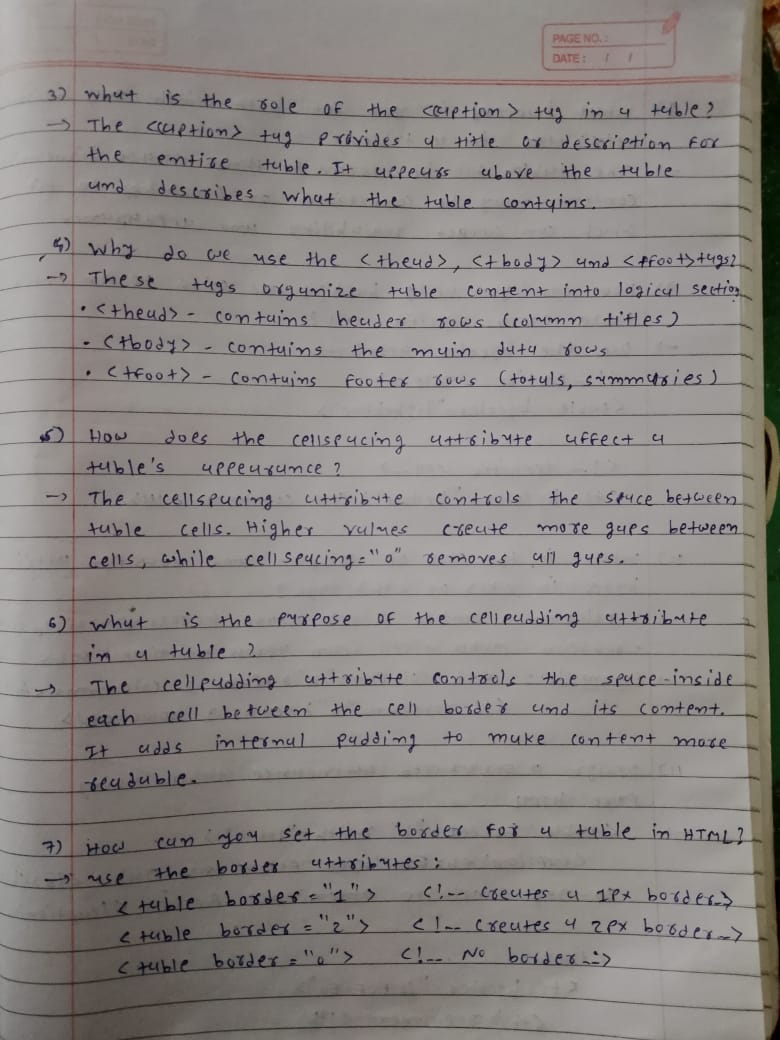 PAGE NO.:
DATE: / /
3) What is the role of the <caption> tag in a table?
→ The <caption> tag provides a title or description for
the entire table. It appears above the table
and describes what the table contains.
4) Why do we use the <thead>, <tbody> and <tfoot> tags?
→ These tags organize table content into logical section
• <thead> - contains header rows (column titles)
• <tbody> - contains the main data rows
• <tfoot> - contains footer rows (totals, summaries)
5) How does the cellspacing attribute affect a
table's appearance?
→ The cellspacing attribute controls the space between
table cells. Higher values create more gaps between
cells, while cellspacing="0" removes all gaps.
6) What is the purpose of the cellpadding attribute
in a table?
→ The cellpadding attribute controls the space inside
each cell between the cell border and its content.
It adds internal padding to make content more
readable.
7) How can you set the border for a table in HTML?
→ use the border attributes:
<table border="1"> <!-- creates a 1px border-->
<table border="2"> <!-- creates a 2px border-->
<table border="0"> <!-- No border-->